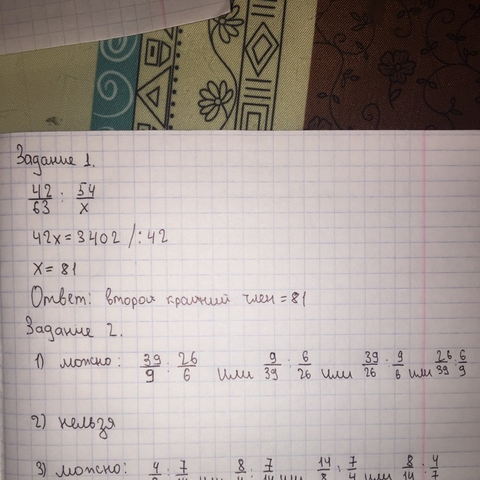 Задание 1.
42/63 : 54/x
42x = 3402 /:42
x = 81
Ответ: второй крайний член = 81
Задание 2.
1) можно: 39/9 : 26/6 или 9/39 : 6/26 или 39/26 : 9/6 или 26/39 : 6/9
2) нельзя
3) можно: 4/8 : 7/14 или 8/4 : 14/7 или